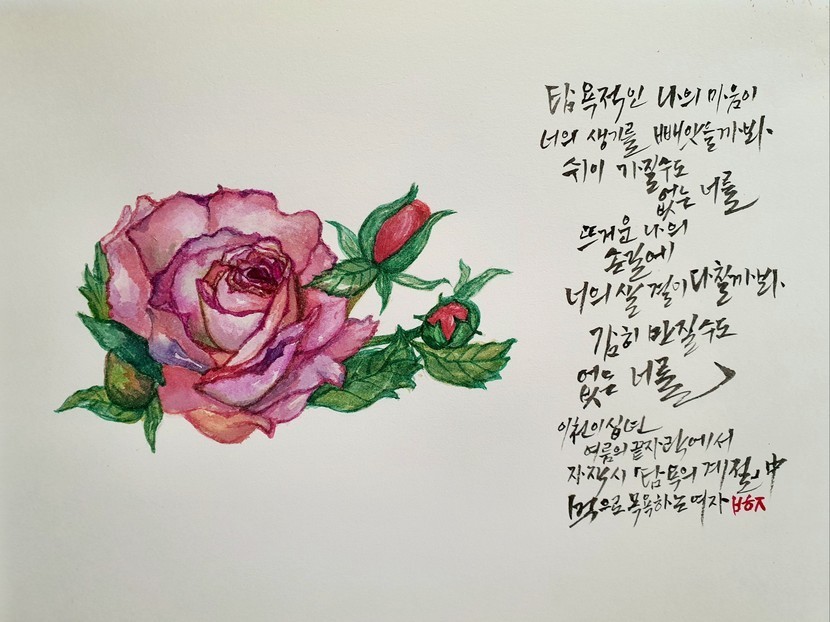 탐욕적인 나의 마음이
너의 생기를 빼앗을까봐.
쉬이 가질수도
없는 너를
뜨거운 나의
손길에
너의 살결이 다칠까봐.
감히 만질수도
없는 너를
이천이십년
여름의 끝자락에서
자작시 「탐욕의 계절」中
먹으로 목욕하는 여자